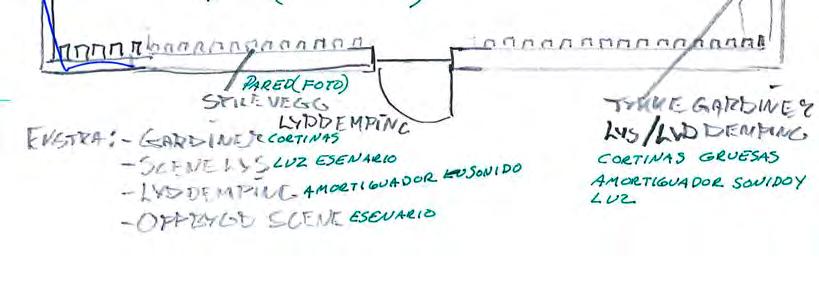 PARED (FOTO)
SPILEVEGG
LYDDEMPING
EKSTRA: - GARDINER CORTINAS
- SCENE LYS LUZ ESENARIO
- LYDDEMPING AMORTIGUADOR SONIDO
- OPPBYGD SCENE ESENARIO
TYKKE GARDINER
LYS/LYD DEMPING
CORTINAS GRUESAS
AMORTIGUADOR SONIDO Y
LUZ